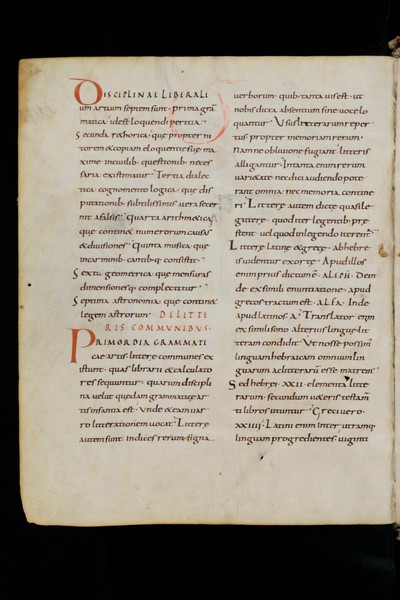 DISCIPLINAE LIBERALI
um artium septem sunt. prima grā
matica. idest loquendi peritia.
Secunda rethorica. que propter ni
torem & copiam eloquentie sue ma
xime in ciuilib. questionib. neces
saria existimatur. Tertia dialec
tica cognomento logica. que dis
putationib. subtilissimis uera secer
nit a falsis. Quarta arithmetica
que continet numerorum causas
& diuisiones. Quinta musica. que
in carminib. cantibq. consistit.
Sexta geometrica. que mensuras
dimensionesq. complectitur.
Septima astronomia. que continet
legem astrorum. DE LITTE
RIS COMMUNIBUS.
PRIMORDIA GRAMMATI
cae artis littere communes ex
istunt. quas librarii & calculato
res sequuntur. quarum discipli
na uelut quedam grammatice ar
tis infantia est. Unde & eam uar
ro litterationem uocat. Littere
autem sunt indices rerum. signa
uerborum. quib. tanta uis est. ut
nobis dicta absentium sine uoce lo
quantur. Usus litterarum reper
tus propter memoriam rerum.
Nam ne obliuione fugiant. litteris
alligantur. In tanta enim rerum
uarietate nec disci audiendo pote
rant omnia. nec memoria contine
ri. Littere autem dicte quasi le
gitere. quod iter legentib. pre
stent. uel quod in legendo iterentur.
Littere latine & grece. ab hebre
is uidentur exorte. Apud illos
enim prius dictum ē. ALEPH. Dein
de ex simili enuntiatione. apud
grecos tractum est. ALFA. Inde
apud latinos. A. Translator enim
ex simili sono alterius lingue lit
teram condidit. Ut nosse possim
linguam hebraicam omnium lin
guarum ac litterarū esse matrem
Sed hebrei. XXII. elementa litte
rarum. secundum ueteris testam̄
ti libros utuntur. Greci uero.
XXIIII. Latini enim inter utramq.
linguam progredientes. uiginti